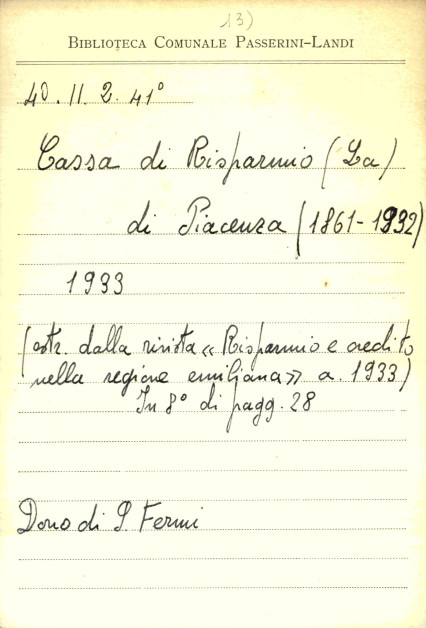 13)
BIBLIOTECA COMUNALE PASSERINI-LANDI
4D. II. 2. 41°
Cassa di Risparmio (La)
di Piacenza (1861-1932)
1933
(estr. dalla rivista «Risparmio e credito
nella regione emiliana» a. 1933)
In 8° di pagg. 28
Dono di S. Fermi